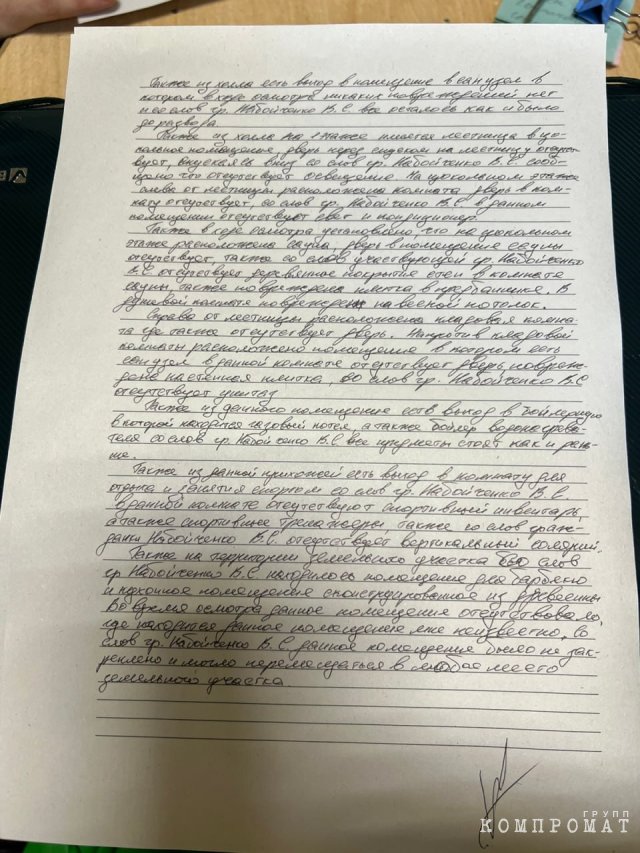 Также из холла есть выход в помещение в санузел в
котором в ходе осмотра никаких повреждений нет
и со слов гр. Набойченко В.С все осталось как и было
до развода.
Также из холла на 1 этаже имеется лестница в цо-
кольное помещение, дверь перед спуском на лестницу отсутст-
вует, спускаясь вниз со слов гр. Набойченко В.С сооб-
щено что отсутствует освещение. На цокольном этаже
слева от лестницы расположена комната дверь в ком-
нату отсутствует, со слов гр. Набойченко В.С в данном
помещении отсутствует свет и кондиционер.
Также в ходе осмотра установлено, что на цокольном
этаже расположена сауна, дверь в помещение сауны
отсутствует, также со слов участвующей гр. Набойченко
В.С отсутствует деревянное покрытие стен в комнате
сауны, также повреждена плитка в предбаннике. В
душевой комнате поврежден навесной потолок.
Справа от лестницы расположена кладовая комна-
та где также отсутствует дверь. Напротив кладовой
комнаты расположено помещение в котором есть
санузел в данной комнате отсутствует дверь, повреж-
дена настенная плитка, со слов гр. Набойченко В.С
отсутствует унитаз
Также из данного помещения есть выход в бойлерную
в которой находится газовый котел, а также бойлер водонагрева-
теля со слов гр. Набойченко В.С все предметы стоят как и рань-
ше.
Также из данной прихожей есть выход в комнату для
отдыха и занятия спортом со слов гр. Набойченко В.С
в данной комнате отсутствуют спортивный инвентарь,
а также спортивные тренажеры, также со слов граж-
данки Набойченко В.С. отсутствует вертикальный солярий.
Также на территории земельного участка со слов
гр Набойченко В.С находилось помещение для барбекю
и кухонное помещение сконструированное из древесины
Во время осмотра данное помещение отсутствовало,
где находится данное помещение мне неизвестно. Со
слов гр. Набойченко В.С данное помещение было не зак-
реплено и могло перемещаться в любое место
земельного участка.
ГРУПП
КОМПРОМАТ